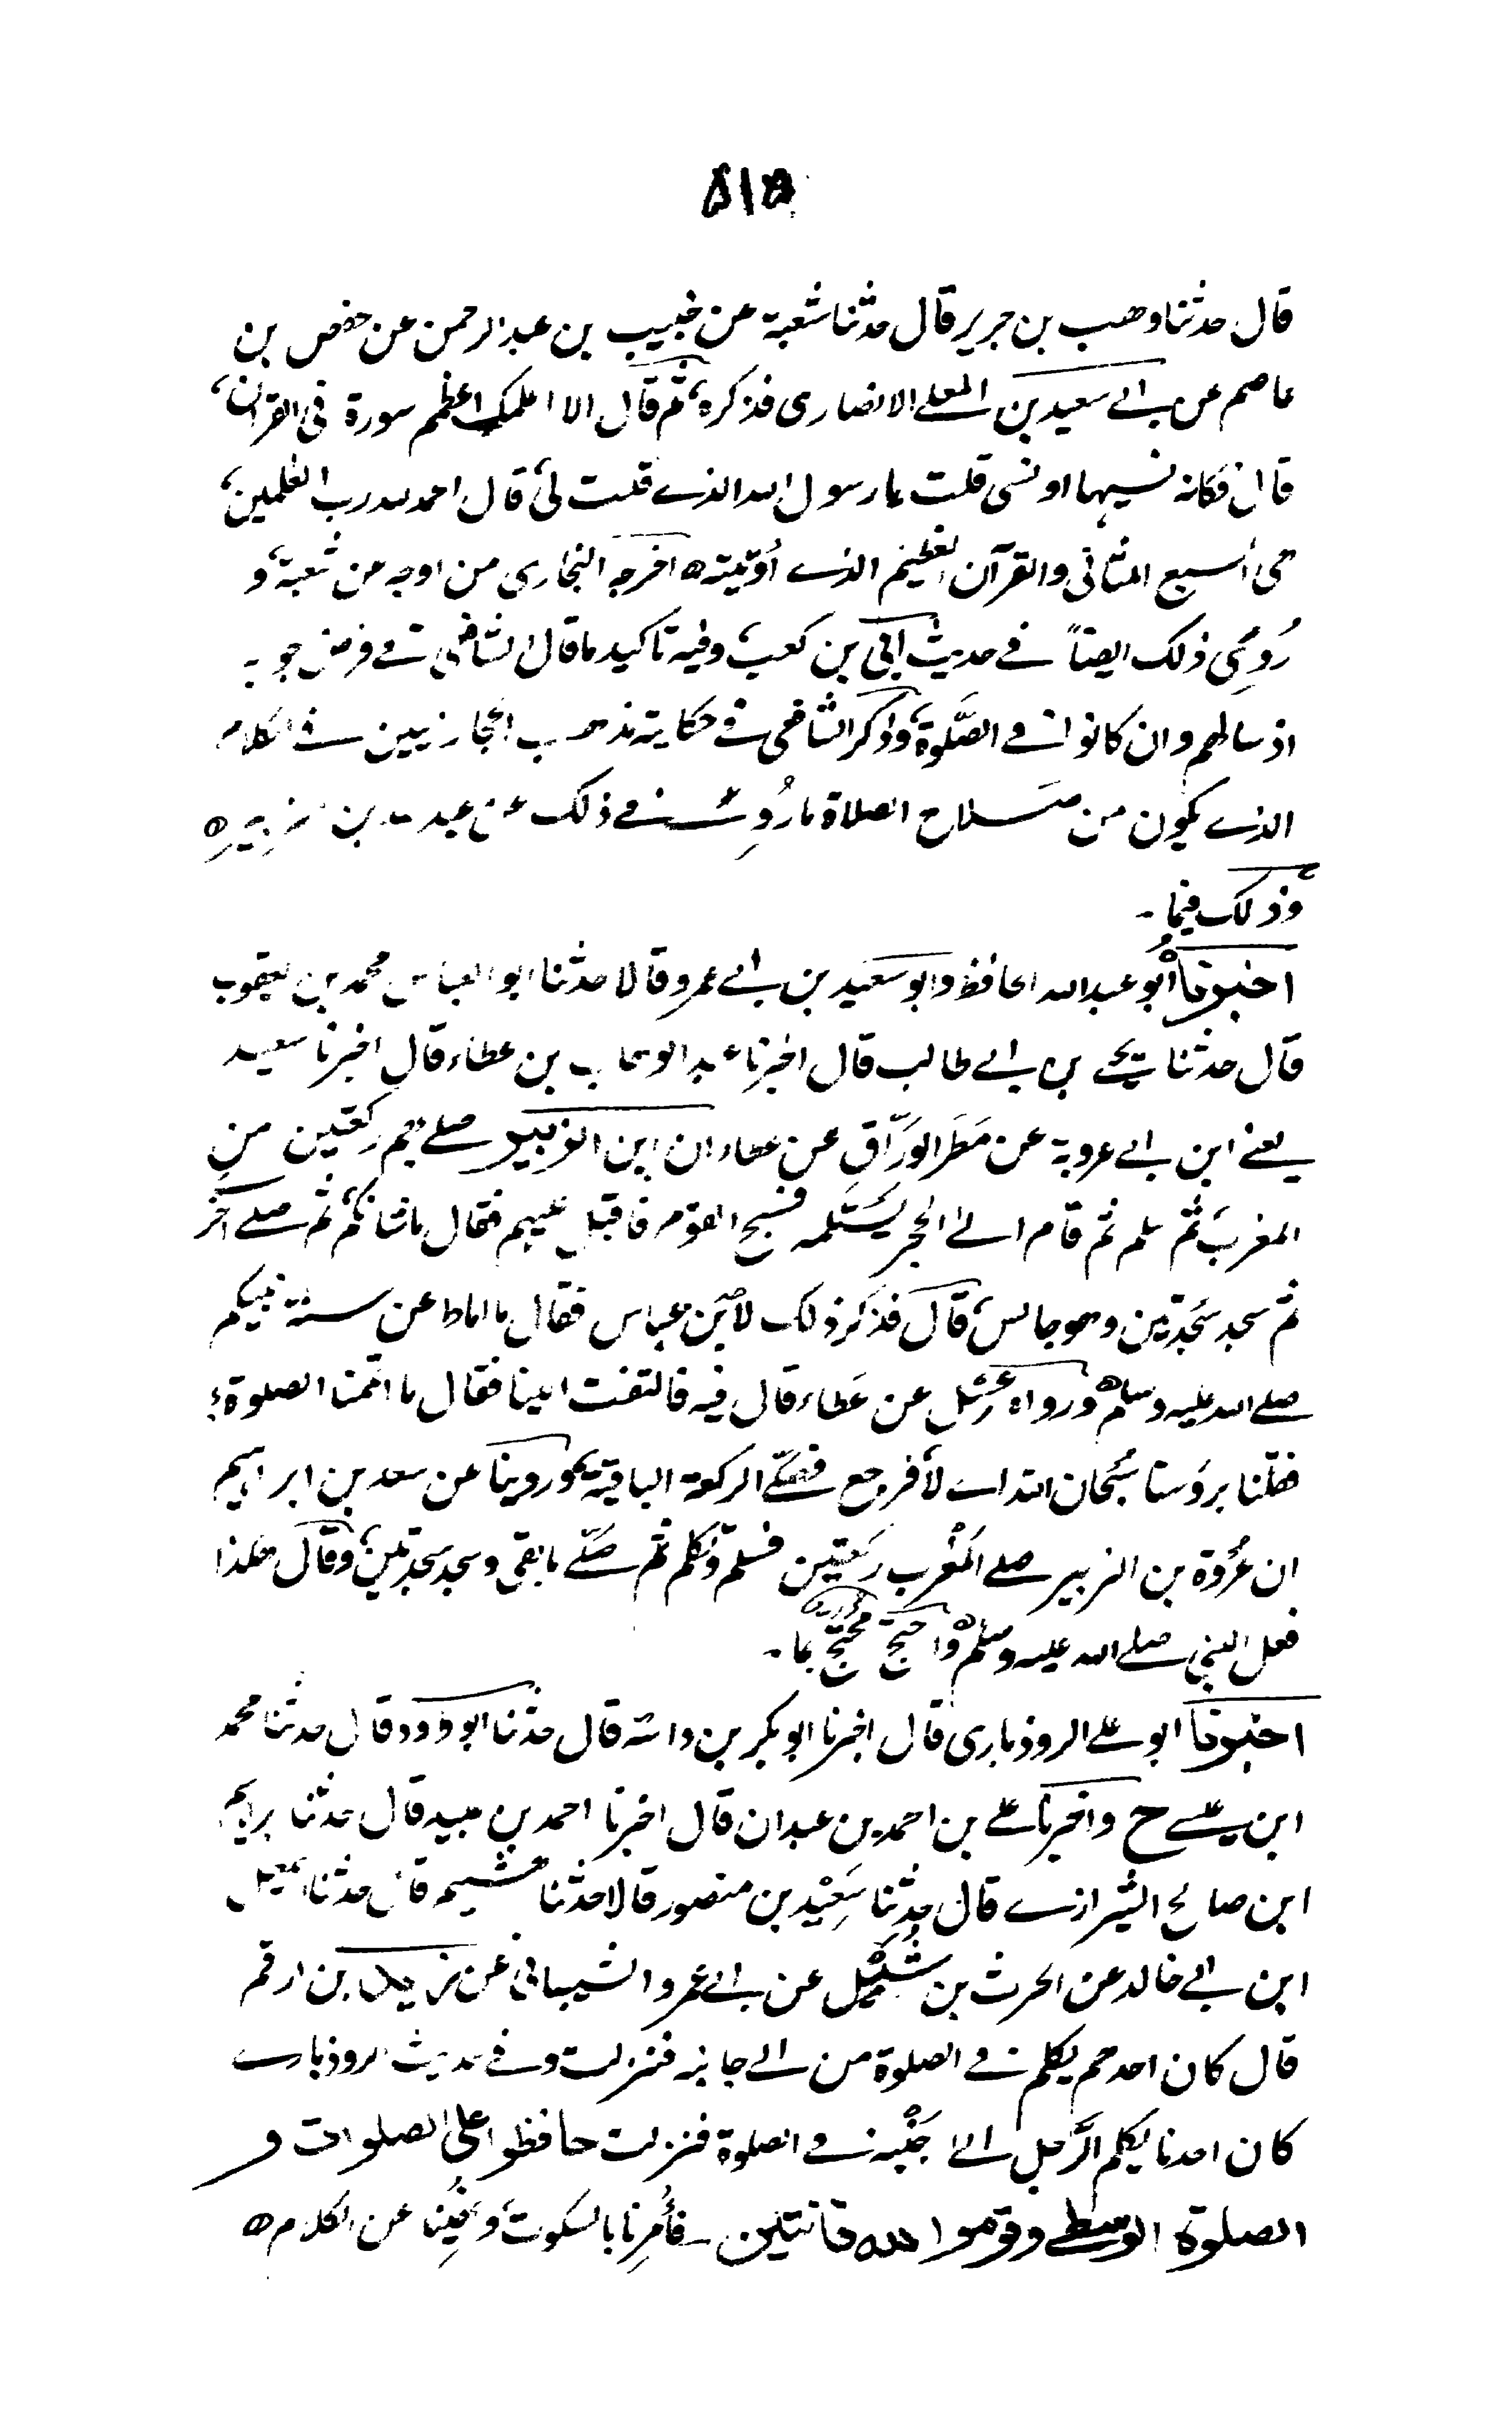 ٥١٥
قال حدثنا وهب بن جرير قال حدثنا شعبة عن خبيب بن عبدالرحمن عن حفص بن
عاصم عن ابي سعيد بن المعلى الانصاري فذكره، ثم قال الا اعلمك اعظم سورة في القران،
قال فكانه نسيها او نسى قلت يا رسول الله الذي قلت لى، قال الحمد لله رب العلمين،
هى السبع المثاني والقرآن العظيم الذي أوتيته ه اخرجه البخاري من اوجه عن شعبة، و
رُوِىَ ذلك ايضاً في حديث أبي بن كعب، وفيه تاكيد ما قال الشافعي في فرض جوابه
اذ سالهم وان كانوا في الصَّلوة، وذكر الشافعي في حكاية مذهب الحجازيين في الكلام
الذي يكون من صَلاح الصلاة ما رُوِىَ في ذلك عن عبد الله بن الزبير ه
وذلك فيما -
اخبرنا أبو عبد الله الحافظ وابو سعيد بن ابي عمرو قالا حدثنا ابو العباس محمد بن يعقوب
قال حدثنا يحيى بن ابي طالب قال اخبرنا عبد الوهاب بن عطاء قال اخبرنا سعيد
يعني ابن ابي عروبة عن مَطَر الورّاق عن عطاء ان ابن الزبير صلى بهم ركعتين من
المغرب ثم سلم ثم قام الى الحجر ليستلمه فسبح القوم فاقبل عليهم فقال ما شانكم، ثم صلى اخرى
ثم سجد سَجدتين وهو جالس، قال فذكر ذلك لابن عباس فقال ما اماط عن سنة نبيكم
صلى الله عليه وسلم ه ورواه عِسْل عن عَطاء قال فيه فالتفت الينا فقال ما اتممنا الصلوة؟
فقلنا برؤسنا سُبحان الله اي لا، فرجع فصلى الركعة الباقية ه وروينا عن سعد بن ابراهيم
ان عُروة بن الزبير صلى المَغْرب ركعتين فسلم وتكلم ثم صَلّى ما بقى وسجد سجدتين، وقال هكذا
فعل النبي صلى الله عليه وسلم ه واحتج محتج بما -
اخبرنا ابو علي الروذباري قال اخبرنا ابو بكر بن داسة قال حدثنا ابو داود قال حدثنا محمد
ابن عيسى ح واخبرنا علي بن احمد بن عبدان قال اخبرنا احمد بن عبيد قال حدثنا ابراهيم
ابن صالح الشيرازي قال حدثنا سَعِيْد بن منصور قالا حدثنا هشيم قال حدثنا اسمعيل
ابن ابي خالد عن الحرث بن شُبَيْل عن ابي عمرو الشيباني عن زيد بن ارقم
قال كان احدهم يكلم في الصلوة من الى جانبه فنزلت وفي حديث الروذباري
كان احدنا يكلم الرَّجل الى جَنْبه في الصلوة فنزلت حافظوا على الصلوات و
الصلوة الوسطى وقوموا لله قانتين - فأُمِرنا بالسكوت، ونُهِيْنا عن الكلام ه